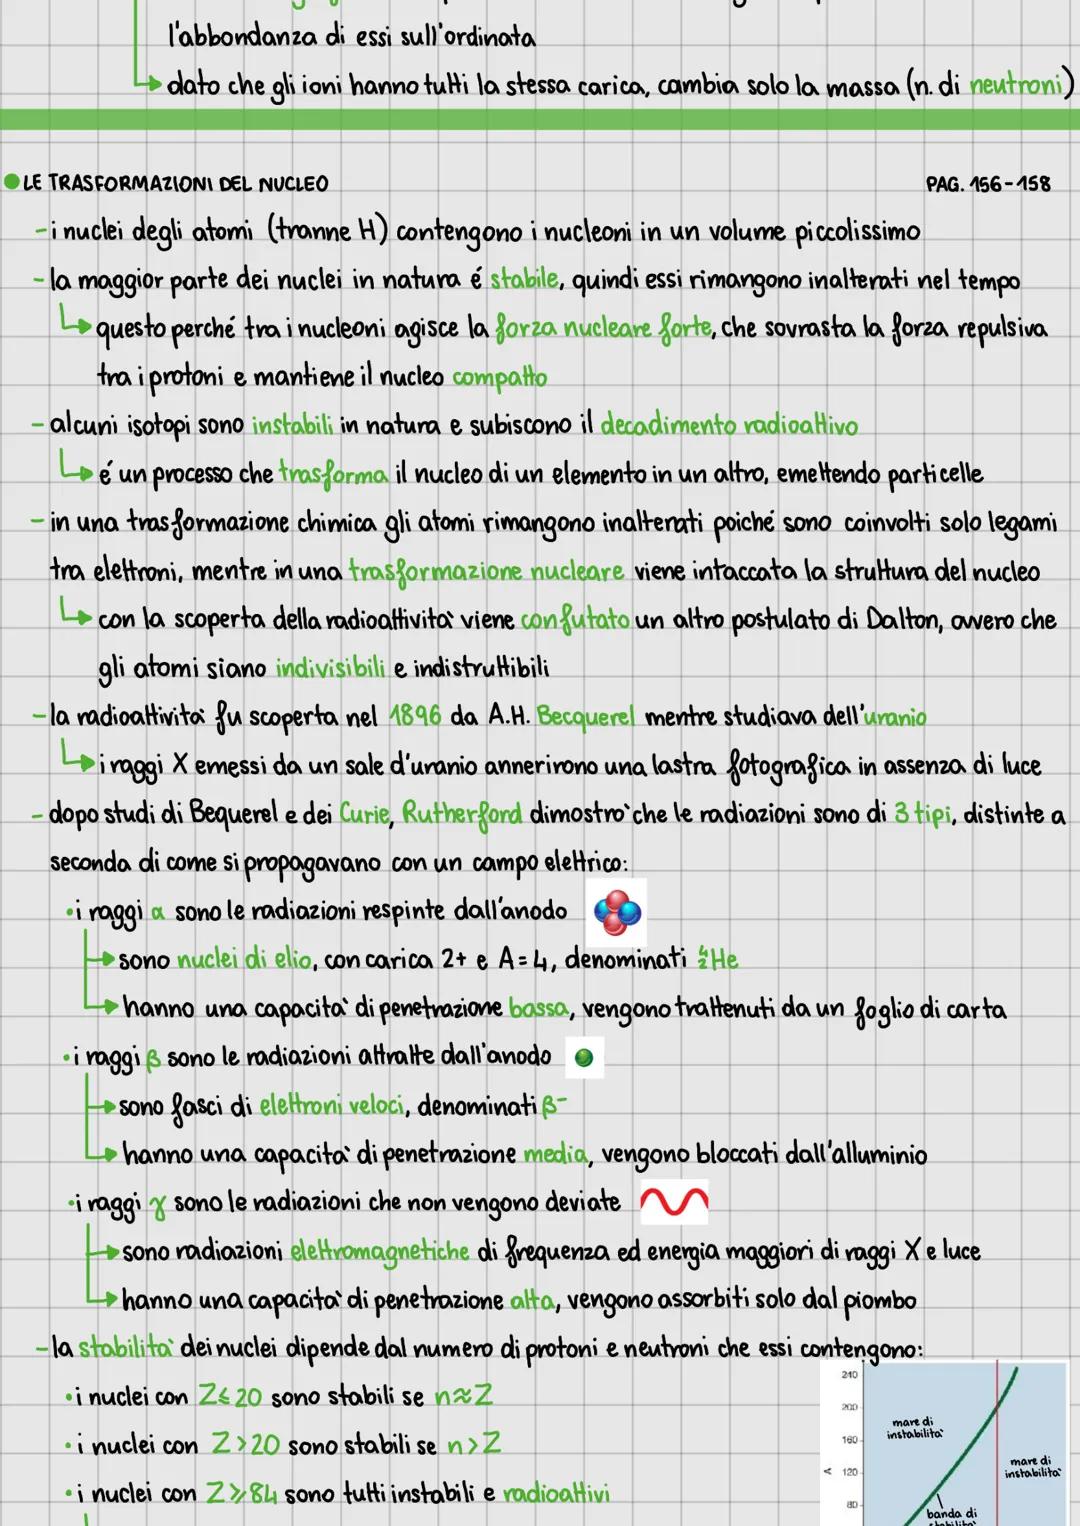 l'abbondanza di essi sull'ordinata
dato che gli ioni hanno tutti la stessa carica, cambia solo la massa (n. di neutroni)
LE TRASFORMAZIONI DEL NUCLEO PAG. 156-158
- i nuclei degli atomi (tranne H) contengono i nucleoni in un volume piccolissimo
- la maggior parte dei nuclei in natura é stabile, quindi essi rimangono inalterati nel tempo
questo perché tra i nucleoni agisce la forza nucleare forte, che sovrasta la forza repulsiva
tra i protoni e mantiene il nucleo compatto
- alcuni isotopi sono instabili in natura e subiscono il decadimento radioattivo
é un processo che trasforma il nucleo di un elemento in un altro, emettendo particelle
- in una trasformazione chimica gli atomi rimangono inalterati poiché sono coinvolti solo legami
tra elettroni, mentre in una trasformazione nucleare viene intaccata la struttura del nucleo
con la scoperta della radioattivita` viene confutato un altro postulato di Dalton, ovvero che
gli atomi siano indivisibili e indistruttibili
- la radioattivita` fu scoperta nel 1896 da A.H. Becquerel mentre studiava dell'uranio
i raggi X emessi da un sale d'uranio annerirono una lastra fotografica in assenza di luce
- dopo studi di Bequerel e dei Curie, Rutherford dimostro` che le radiazioni sono di 3 tipi, distinte a
seconda di come si propagavano con un campo elettrico:
• i raggi α sono le radiazioni respinte dall'anodo
sono nuclei di elio, con carica 2+ e A=4, denominati ⁴₂He
hanno una capacita` di penetrazione bassa, vengono trattenuti da un foglio di carta
• i raggi β sono le radiazioni attratte dall'anodo
sono fasci di elettroni veloci, denominati β⁻
hanno una capacita` di penetrazione media, vengono bloccati dall'alluminio
• i raggi γ sono le radiazioni che non vengono deviate
sono radiazioni elettromagnetiche di frequenza ed energia maggiori di raggi X e luce
hanno una capacita` di penetrazione alta, vengono assorbiti solo dal piombo
- la stabilita` dei nuclei dipende dal numero di protoni e neutroni che essi contengono:
• i nuclei con Z≤20 sono stabili se n≈Z
• i nuclei con Z>20 sono stabili se n>Z
• i nuclei con Z≥84 sono tutti instabili e radioattivi
240
200
160
120
80
A
mare di
instabilita`
mare di
instabilita`
banda di